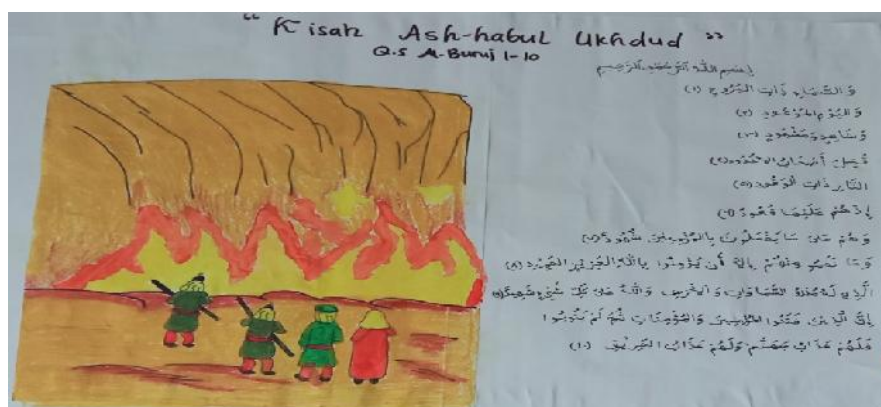 “ Kisah Ash-habul Ukhdud ”
Q.S Al-Buruj 1-10
بسم الله الرحمن الرحيم
والسماء ذات البروج (١)
واليوم الموعود (٢)
وشاهد ومشهود (٣)
قتل أصحاب الاخدود (٤)
النار ذات الوقود (٥)
إذ هم عليها قعود (٦)
وهم على ما يفعلون بالمؤمنين شهود (٧)
وما نقمو منهم إلا أن يؤمنوا بالله العزيز الحميد (٨)
الذي له ملك السماوات والارض والله على كل شيء شهيد (٩)
إن الذين فتنوا المؤمنين والمؤمنات ثم لم يتوبوا
فلهم عذاب جهنم ولهم عذاب الحريق (١٠)